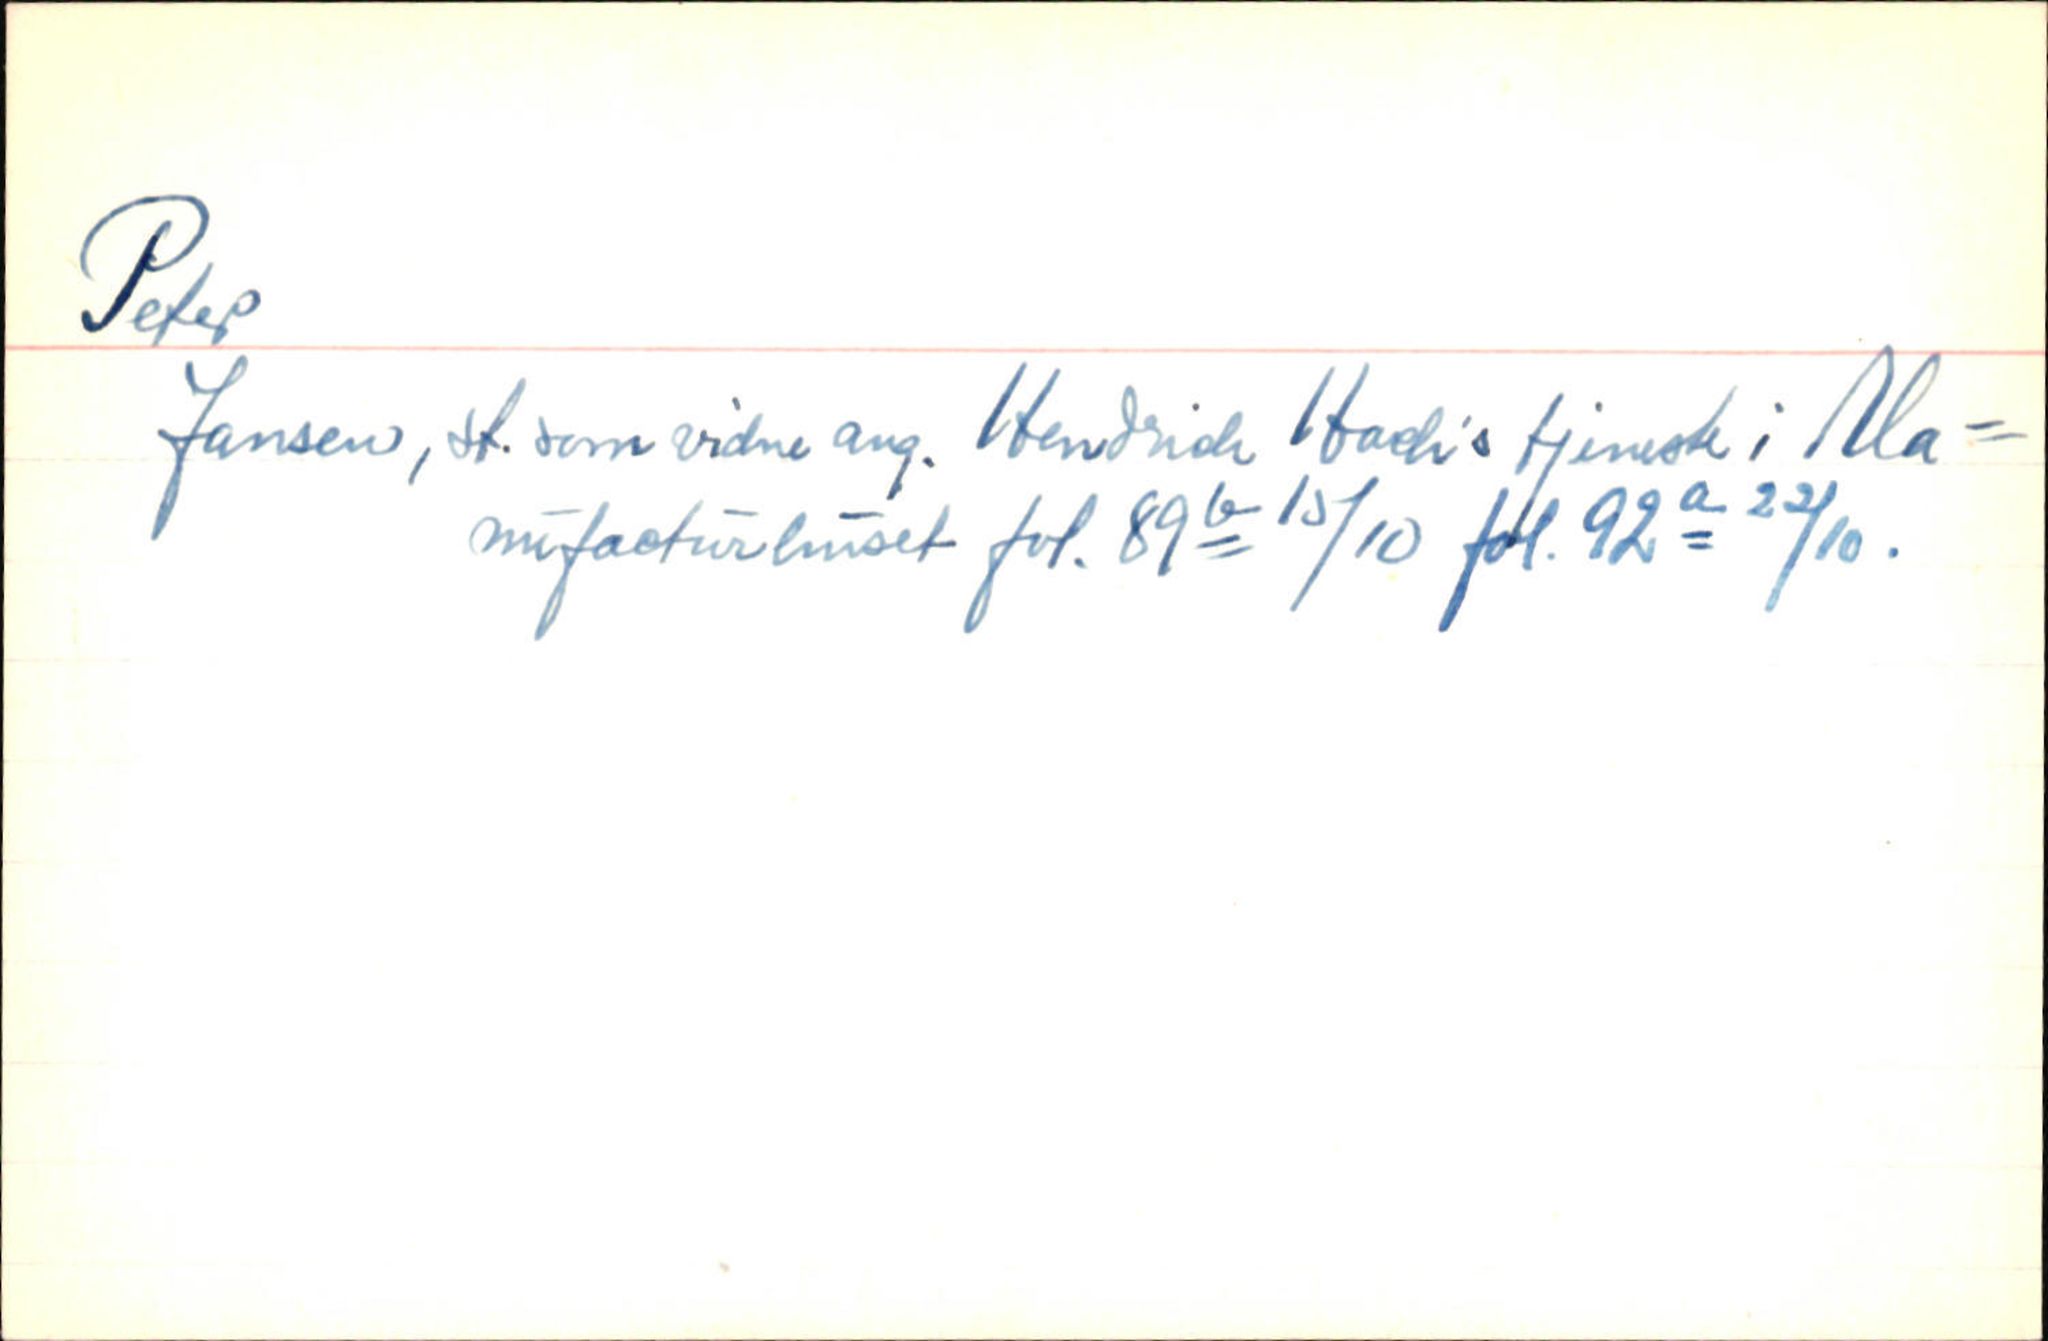 Peter
Jansen, st. som vidne ang. Hendrich Hach's tjeneste i Ma=
nufacturhuset fol. 89b 15/10 fol. 92a 22/10.